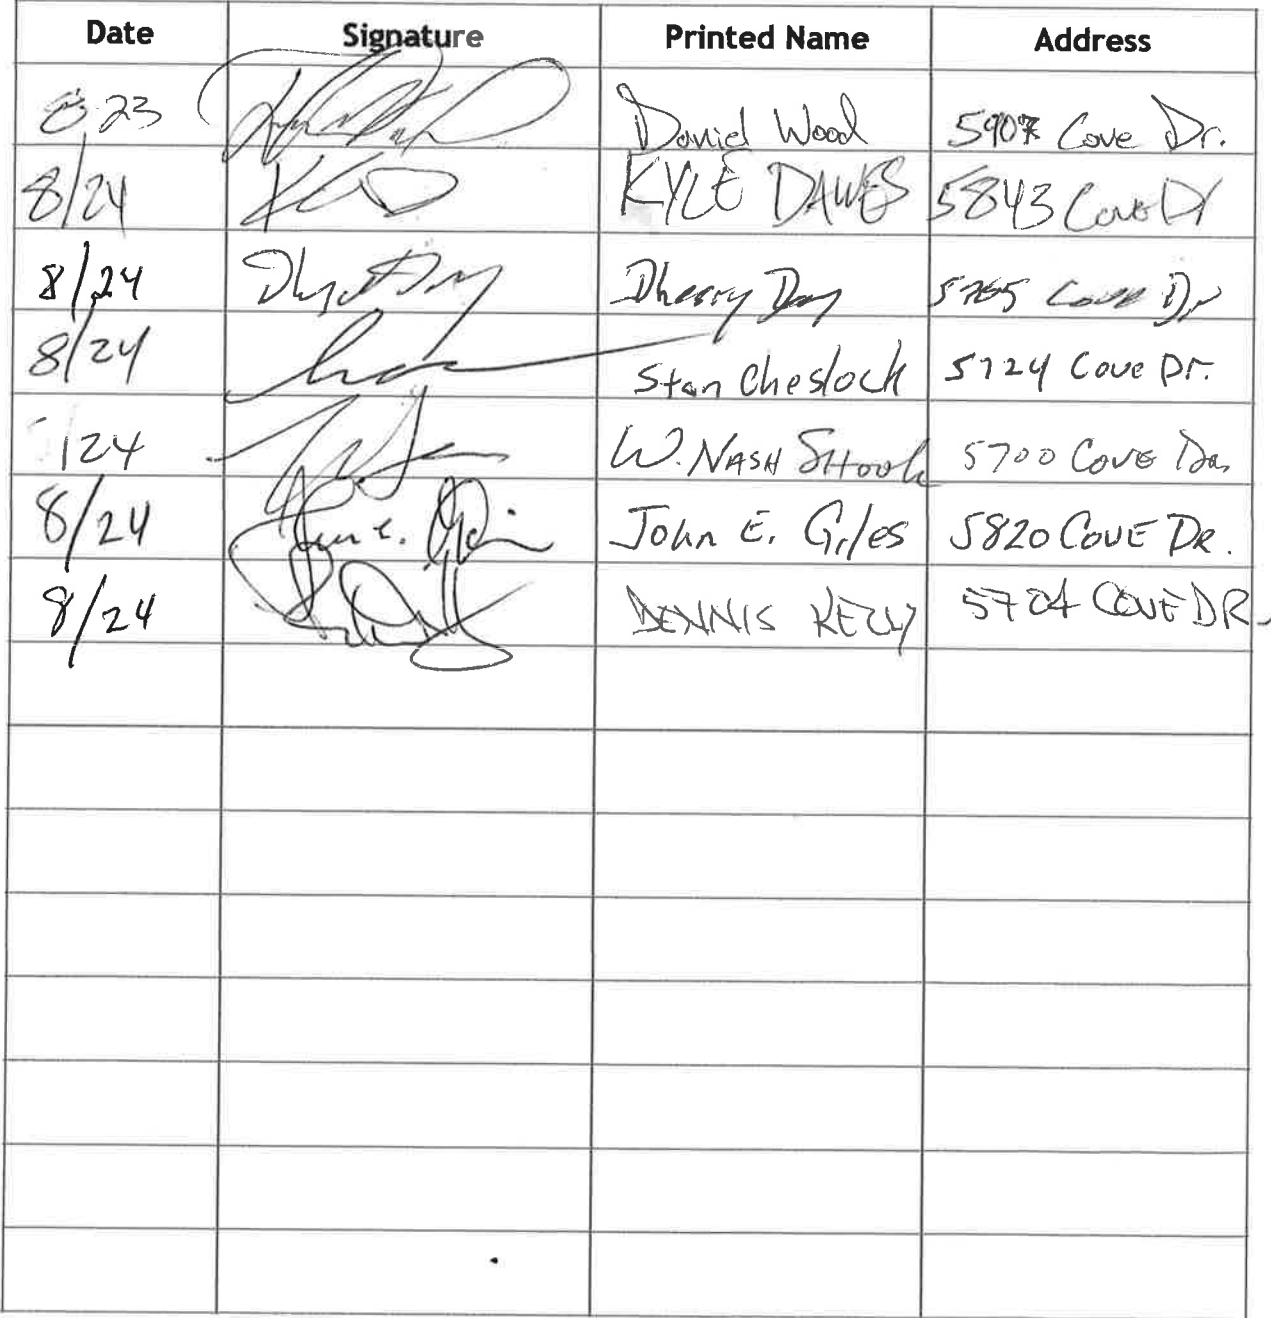 Date Signature Printed Name Address
8 23 Daniel Wood 5907 Cove Dr.
8/24 KYLE DAWES 5843 Cove Dr
8/24 Dherry Day 5765 Cove Dr
8/24 Stan Cheslock 5724 Cove Dr.
/24 W. NASH SHook 5700 COVE
8/24 John E. Giles 5820 COVE DR.
8/24 DENNIS KELLY 5704 COVE DR.